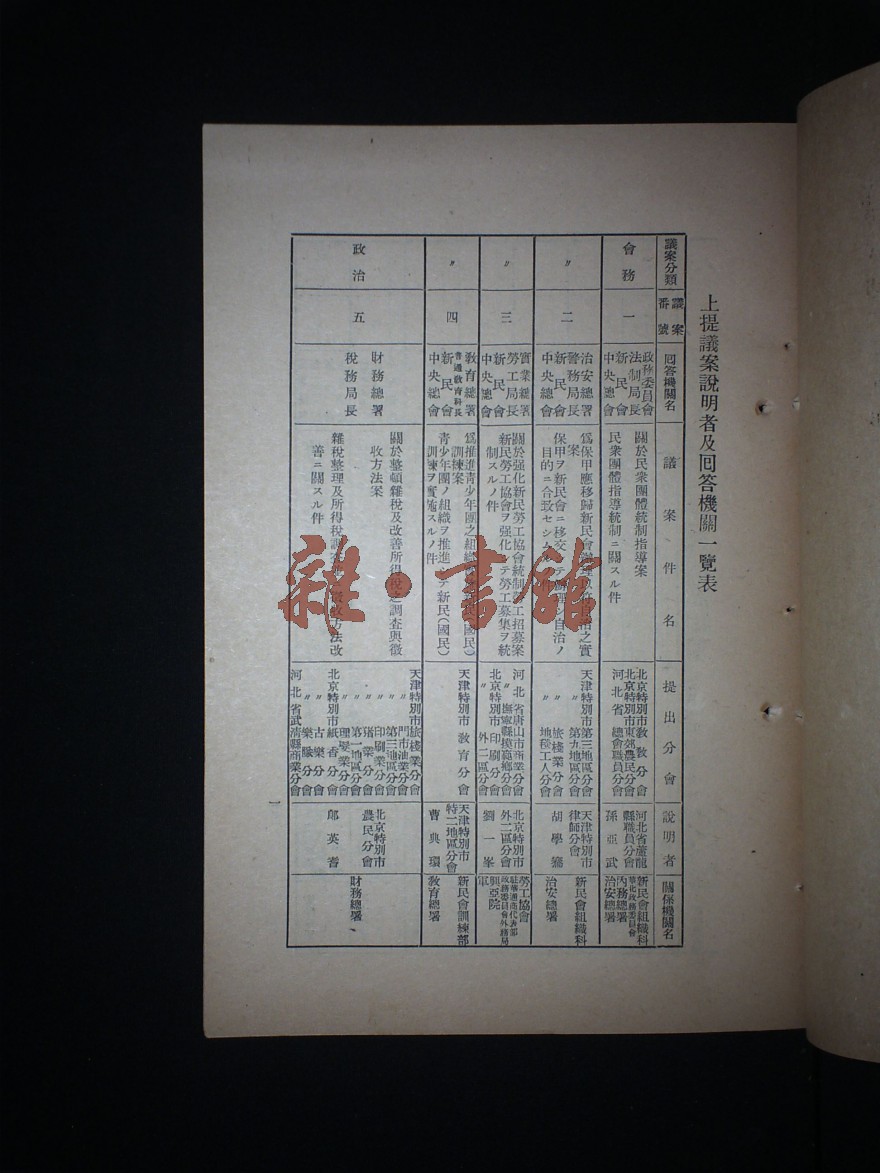 上提議案說明者及回答機關一覽表
議案分類
議案
番號
回答機關名
議案件名
提出分會
說明者
關係機關名
會務
一
政務委員會
法制局長
新民會
中央總會
關於民衆團體統制指導案
民衆團體指導統制ニ關スル件
北京特別市教敎分會
北京特別市東郊農民分會
河北省總會職員分會
河北省蘆龍
縣職員分會
孫亞武
新民會組織科
華北政務委員會
內務總署
治安總署
〃
二
治安總署
警務局長
新民會
中央總會
爲保甲應移歸新民會
自治之實
案
保甲ヲ新民會ニ移交
自治ノ
目的ニ合致セシ
天津特別市第三地區分會
〃 第九地區分會
〃 旅棧業分會
〃 地毯工人分會
天津特別市
律師分會
胡學騫
新民會組織科
治安總署
〃
三
實業總署
勞工局長
新民會
中央總會
關於强化新民勞工協會統制勞工招募案
新民勞工協會ヲ强化シテ勞工募集ヲ統
制スルノ件
河北省唐山市商業分會
〃 撫寧縣
鄉分會
北京特別市印刷分會
〃 外二區分會
北京特別市
外二區分會
劉一峯
勞工協會
政務委員會外務局
興亞院
軍
〃
四
敎育總署
普通敎育科長
新民會
中央總會
爲推進靑少年團之組織
(國民)
訓練案
靑少年團ノ組織ヲ推進シテ新民(國民)
訓練ヲ實施スルノ件
天津特別市敎育分會
天津特別市
特二地區分會
曹典環
新民會訓練部
敎育總署
政治
五
財務總署
稅務局長
關於整頓雜稅及改善所得稅之調査與徵
收方法案
雜稅整理及所得稅調査
徵收方法改
善ニ關スル件
天津特別市旅棧業分會
〃 門市油業分會
〃 第三地區分會
〃 印刷業分會
〃
業分會
〃 第一地區分會
〃 理髮業分會
北京特別市紙香分會
〃 古樂分會
〃 樂隊分會
河北省武淸縣商業分會
北京特別市
農民分會
郞英
財務總署
一
雜·書館